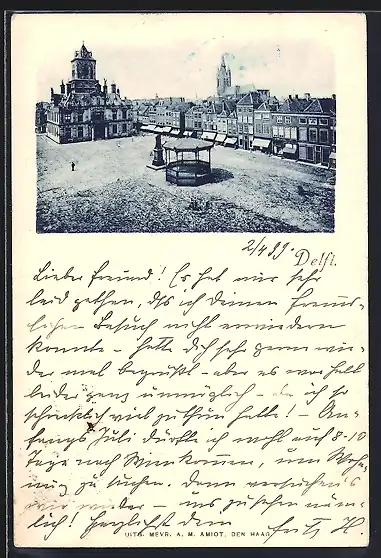 2/4 99. Delft.
Lieber Freund! Es hat mir sehr
leid gethan, daß ich deinen freund-
lichen Besuch nicht erwiedern
konnte - hätte dich sehr gern wie-
der mal begrüßt - aber es war halt
leider ganz unmöglich - da ich so
schrecklich viel zuthun hatte! - An-
fangs Juli dürfte ich wohl auch 8-10
Tage nach Wien kommen, um Woh-
nung zu suchen. Dann versuchen's
wir wieder - uns zu sehen näm-
lich! Herzlichst dein
Fritz H.
UITG. MEVR. A. M. AMIOT, DEN HAAG